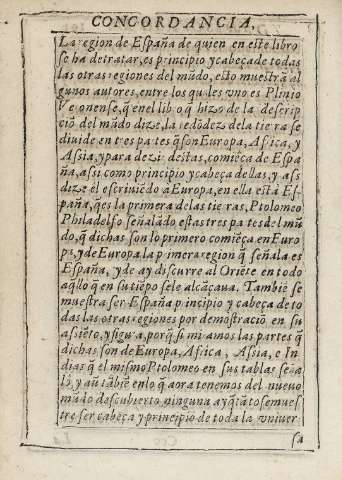 CONCORDANCIA.
La region de España de quien en este libro
se ha de tratar, es principio y cabeça de todas
las otras regiones del mũdo, esto muestrã al
gunos autores, entre los quales vno es Plinio
Veronense, q̃ en el libro q̃ hizo de la descrip
ciõ del mũdo dize, la redõdez de la tierra se
diuide en tres partes q̃ son Europa, Africa, y
Assia, y para dezir destas, comiẽça de Espa
ña, assi como principio y cabeça dellas, y assi
dize el escriuiẽdo a Europa, en ella està Es-
paña, q̃ es la primera de las tierras, Ptolomeo
Philadelfo señalãdo estas tres partes del mũ
do, q̃ dichas son lo primero comiẽça en Euro
pa, y de Europa la primera region q̃ señala es
España, y de ay discurre al Oriẽte en todo
aq̃llo q̃ en su tiẽpo se le alcãçaua. Tambiẽ se
muestra ser España principio y cabeça de to
das las otras regiones por demostraciõ en su
assiẽto, y figura, porq̃ si miramos las partes q̃
dichas son de Europa, Africa, Assia, e In
dias q̃ el mismo Ptolomeo en sus tablas seña
lò, y aũ tãbiẽ en lo q̃ aora tenemos del nueuo
mũdo descubierto ninguna ay q̃ tãto se mues
tre ser cabeça y principio de toda la vniuer
sa